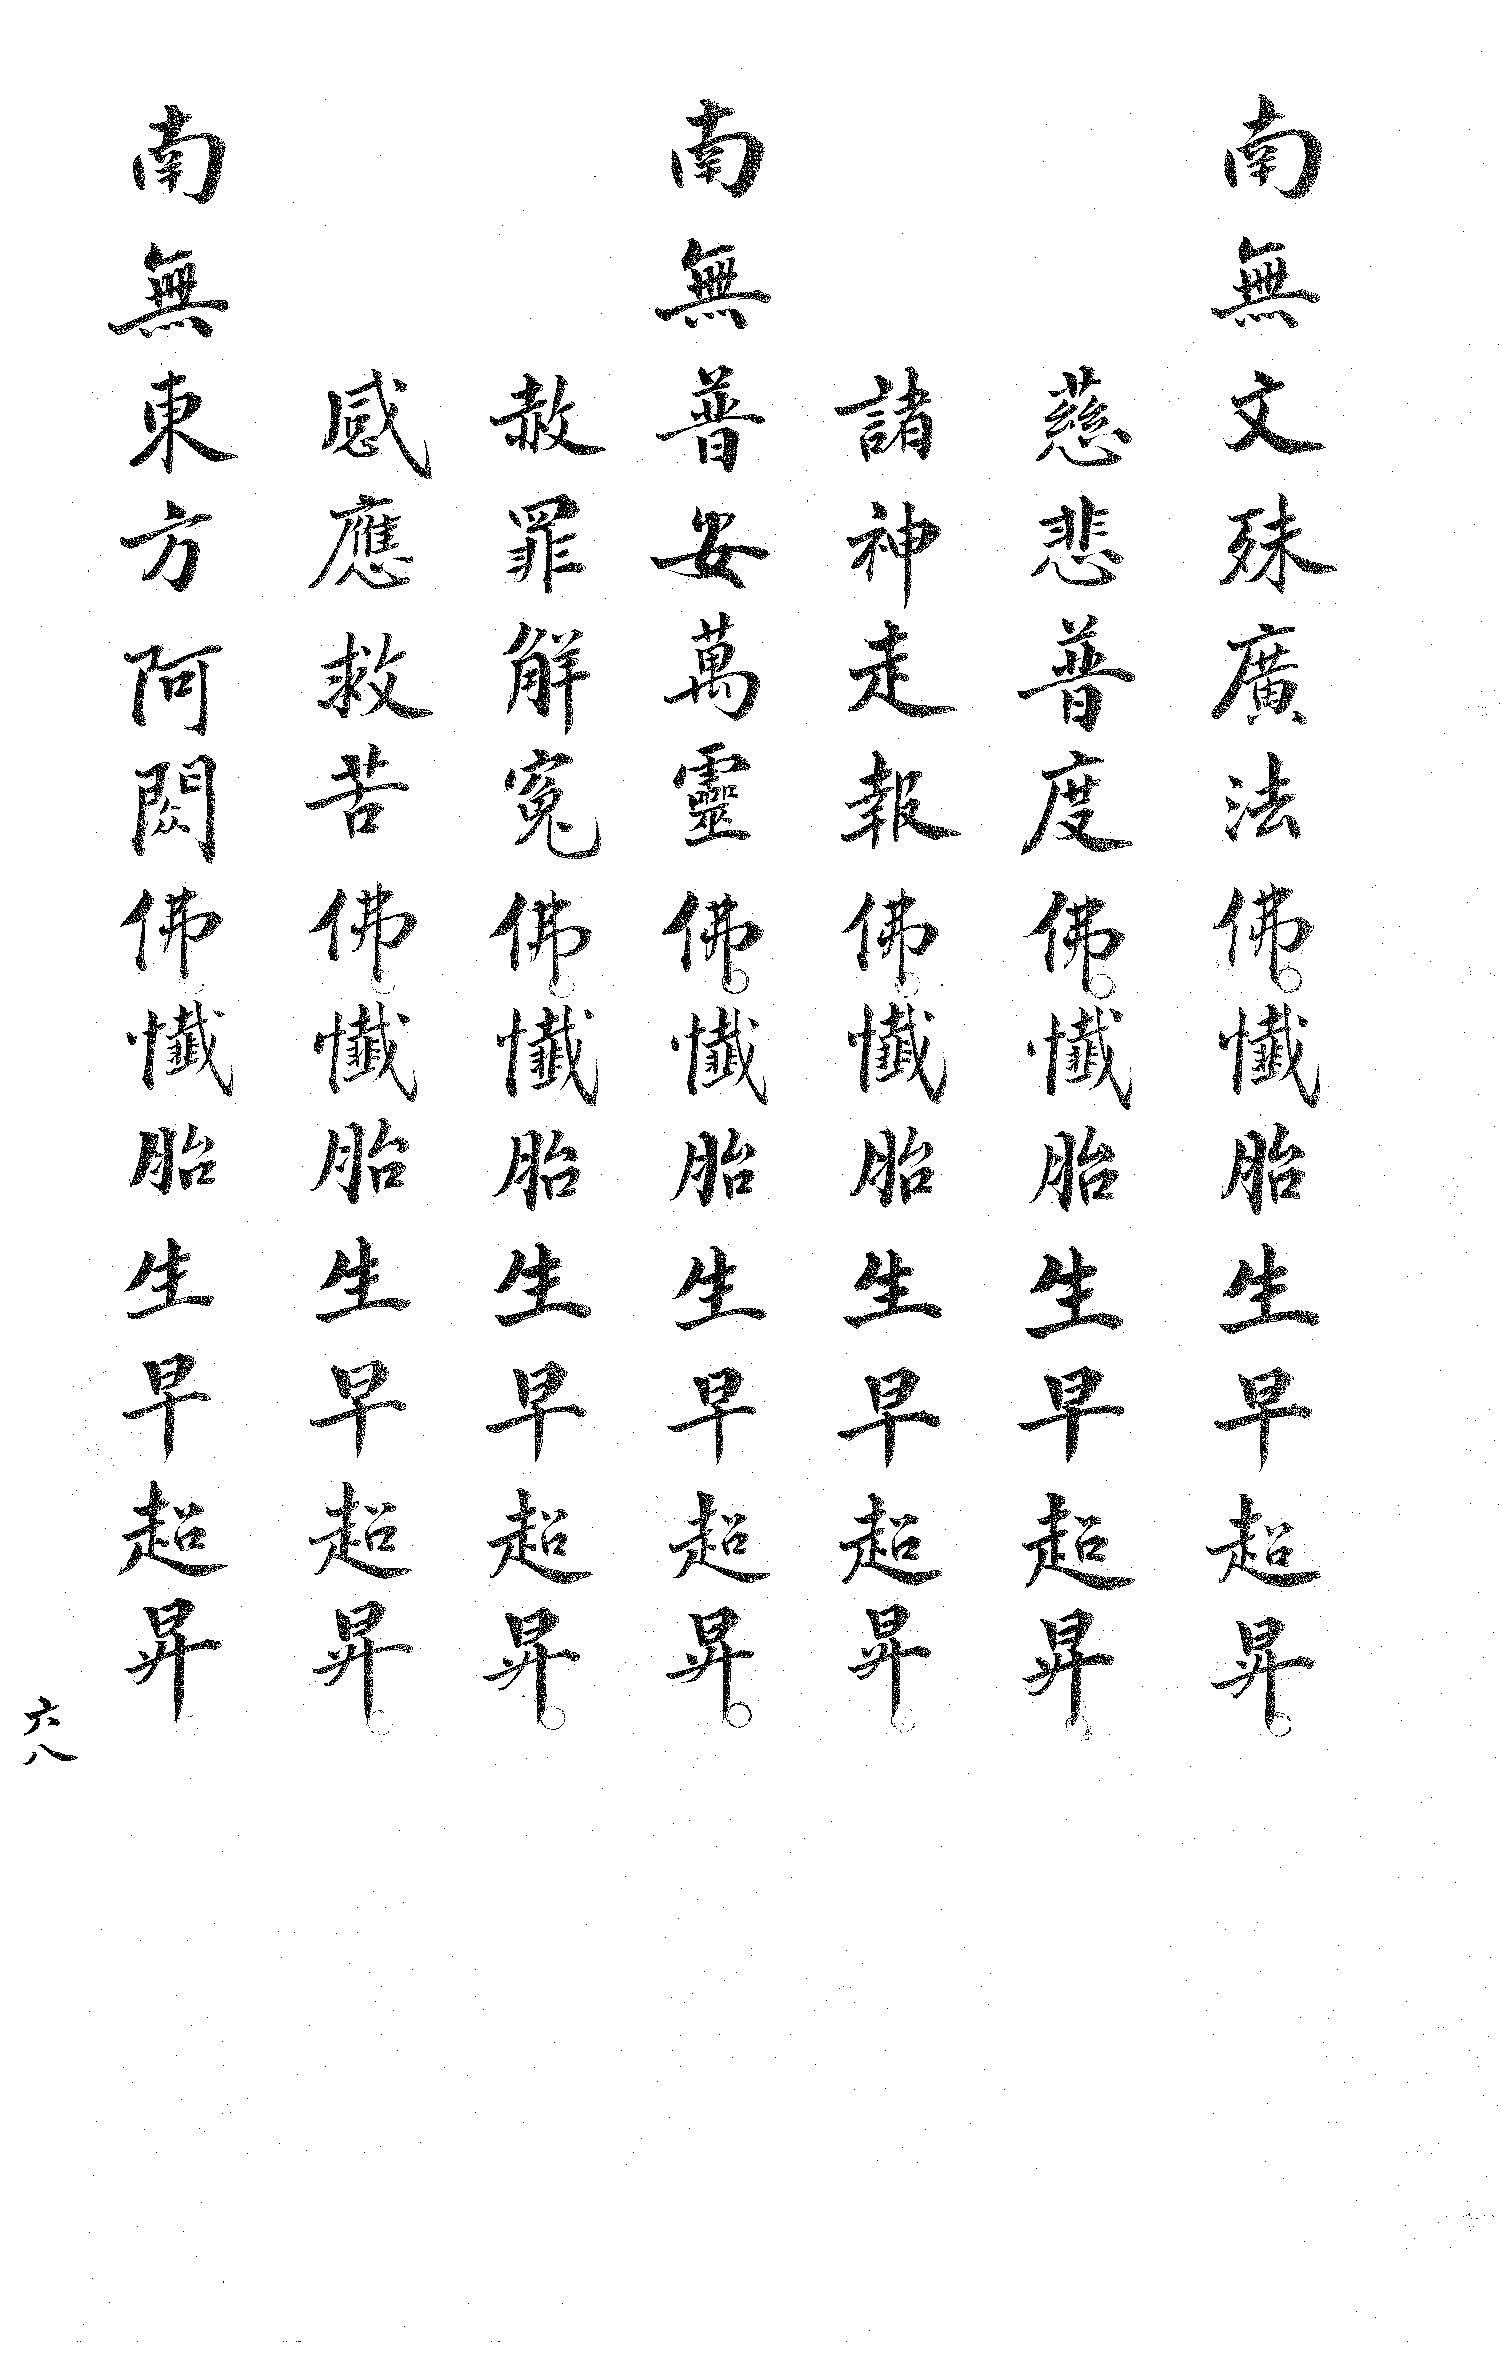 南無文殊廣法佛。懺胎生早超昇。
慈悲普度佛。懺胎生早超昇。
諸神走報佛。懺胎生早超昇。
南無普安萬靈佛。懺胎生早超昇。
赦罪解冤佛。懺胎生早超昇。
感應救苦佛。懺胎生早超昇。
南無東方阿閦佛懺胎生早超昇
六八